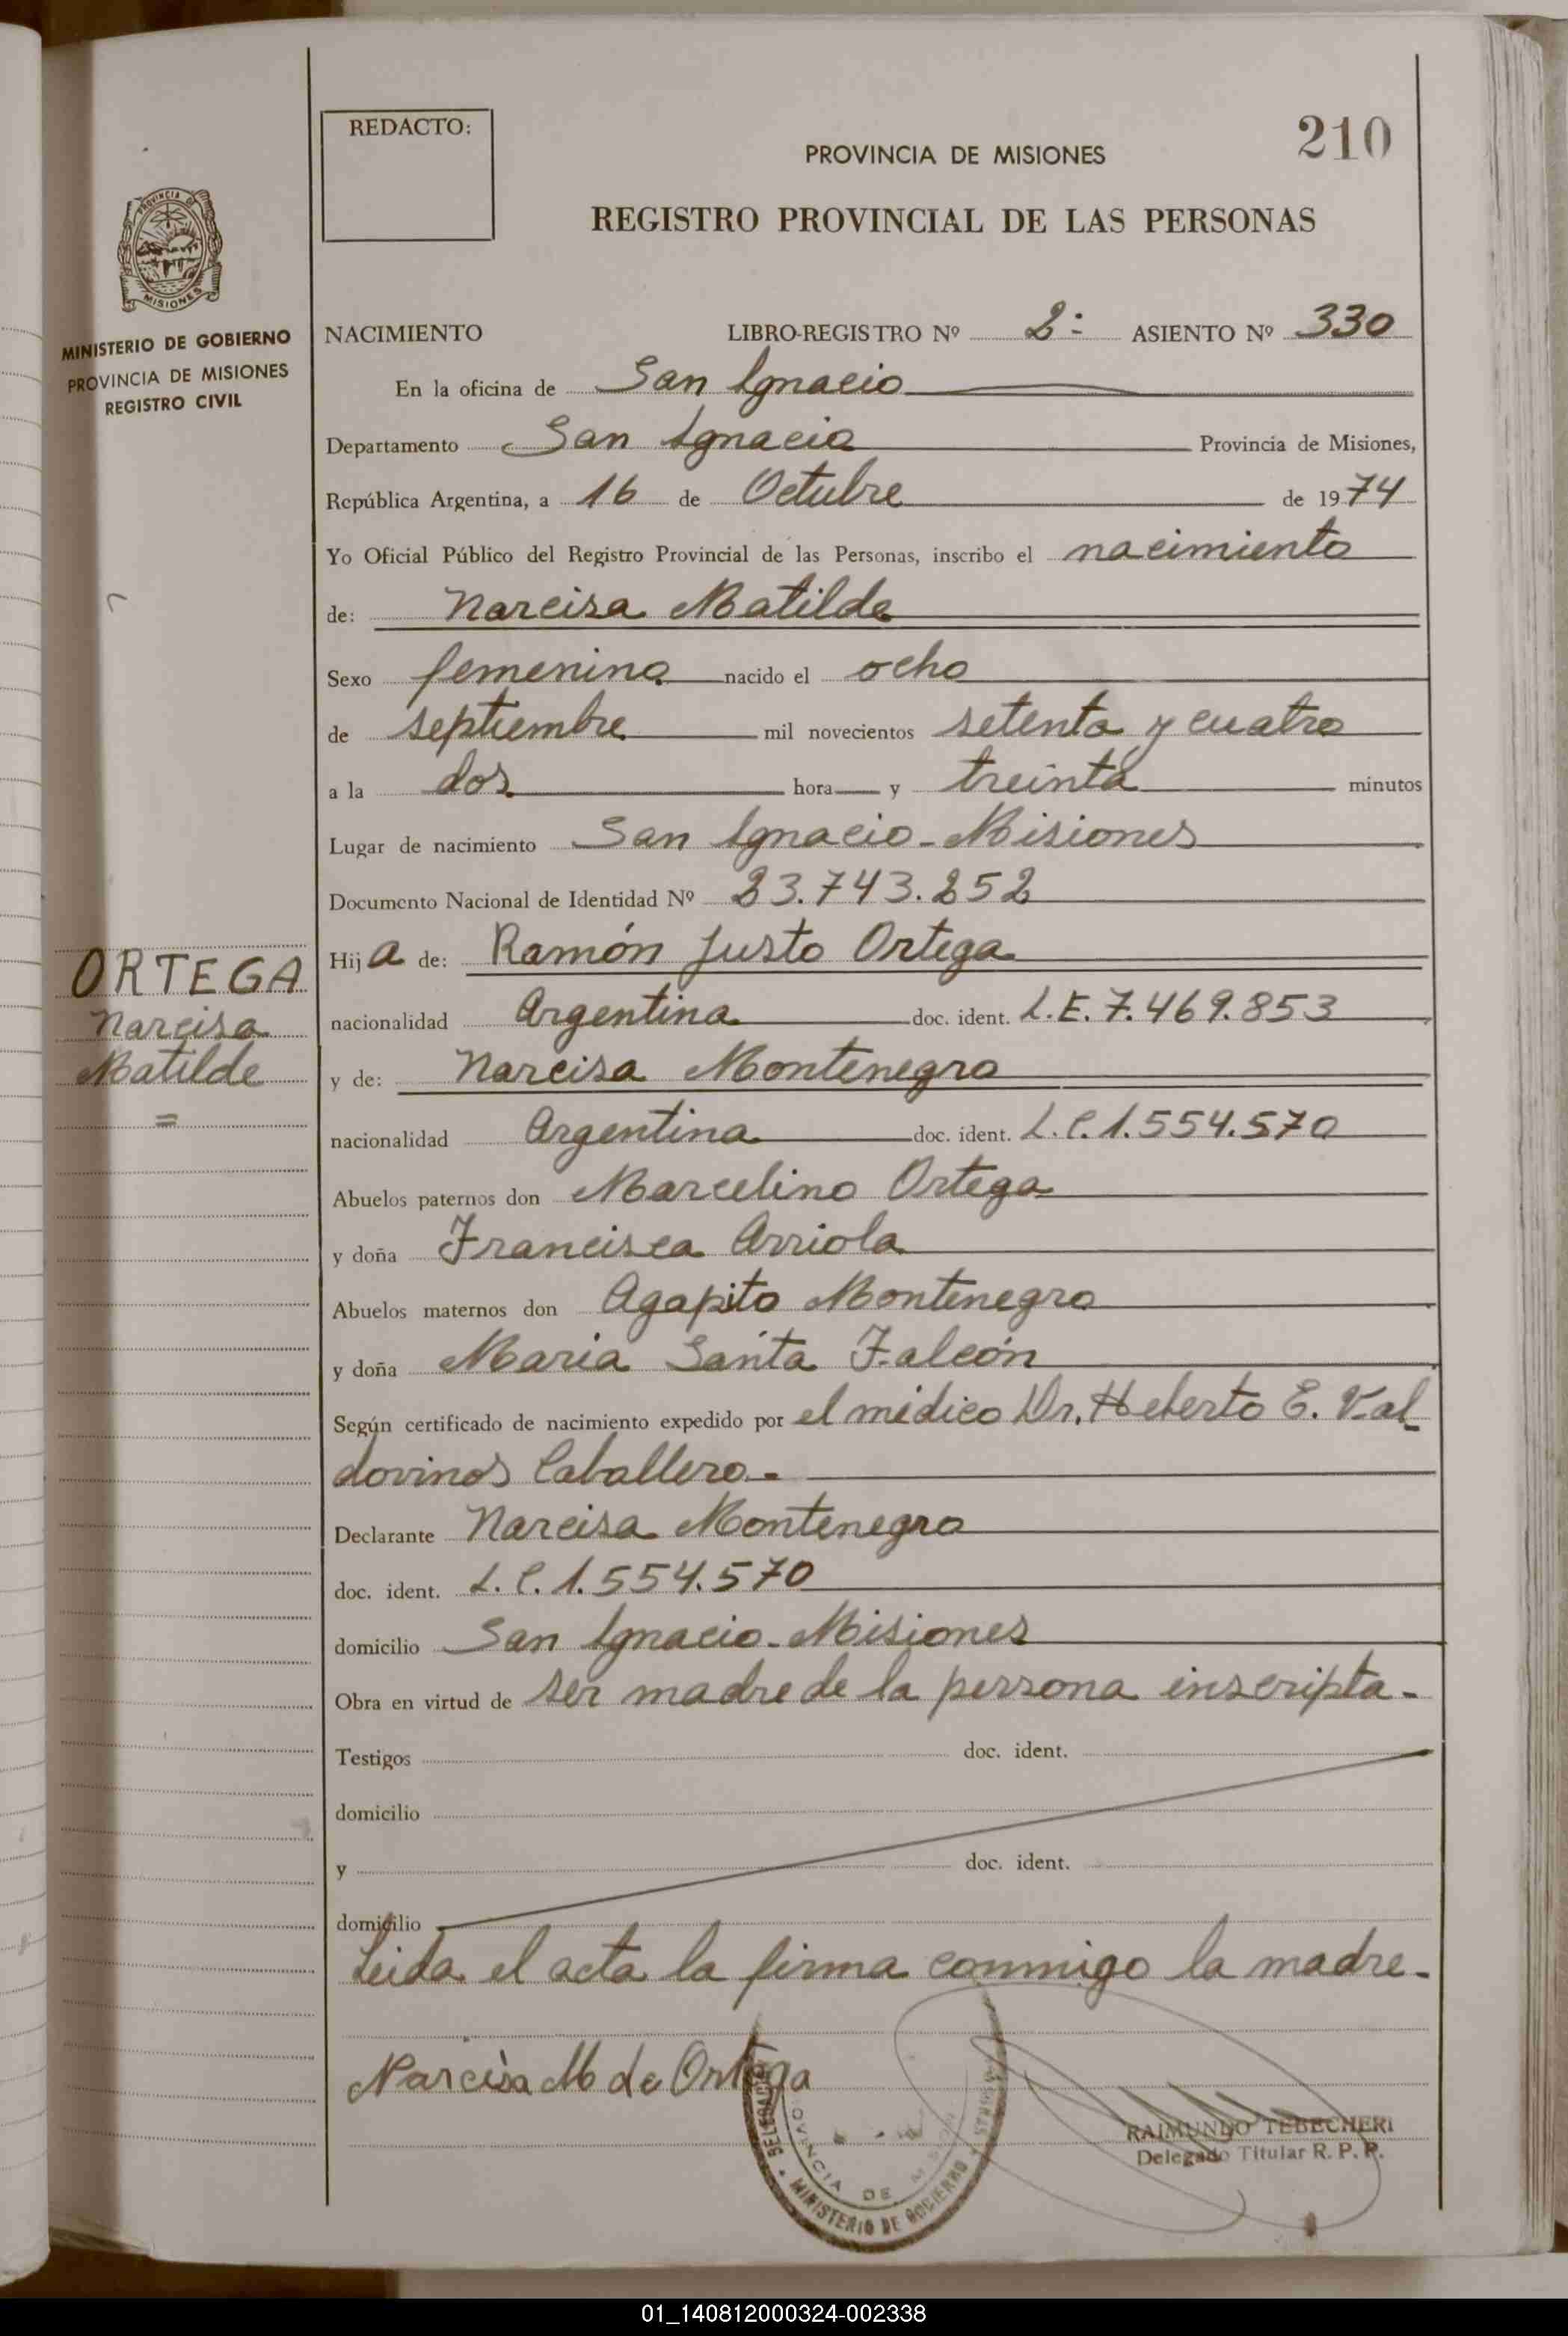 REDACTO:
210
PROVINCIA DE MISIONES
REGISTRO PROVINCIAL DE LAS PERSONAS
PROVINCIA DE
MISIONES
MINISTERIO DE GOBIERNO
PROVINCIA DE MISIONES
REGISTRO CIVIL
NACIMIENTO LIBRO-REGISTRO Nº 2º ASIENTO Nº 330
En la oficina de San Ignacio
Departamento San Ignacio Provincia de Misiones,
República Argentina, a 16 de Octubre de 1974
Yo Oficial Público del Registro Provincial de las Personas, inscribo el nacimiento
de: Narcisa Matilde
Sexo femenino nacido el ocho
de septiembre mil novecientos setenta y cuatro
a la dos hora y treinta minutos
Lugar de nacimiento San Ignacio - Misiones
Documento Nacional de Identidad Nº 23.743.252
Hija de: Ramón Justo Ortega
nacionalidad Argentina doc. ident. L.E. 7.469.853
y de: Narcisa Montenegro
nacionalidad Argentina doc. ident. L.C. 1.554.570
ORTEGA
Narcisa
Matilde
=
Abuelos paternos don Marcelino Ortega
y doña Francisca Arriola
Abuelos maternos don Agapito Montenegro
y doña María Santa Falcón
Según certificado de nacimiento expedido por el médico Dr. Heberto E. Val
dovinos Caballero.-
Declarante Narcisa Montenegro
doc. ident. L.C. 1.554.570
domicilio San Ignacio - Misiones
Obra en virtud de ser madre de la persona inscripta.-
Testigos doc. ident.
domicilio
y doc. ident.
domicilio
Leida el acta la firma conmigo la madre.-
Narcisa M de Ortega
DELEGACION
PROVINCIA DE
MINISTERIO DE GOBIERNO
RAIMUNDO TEBECHERI
Delegado Titular R. P. P.
01_140812000324-002338